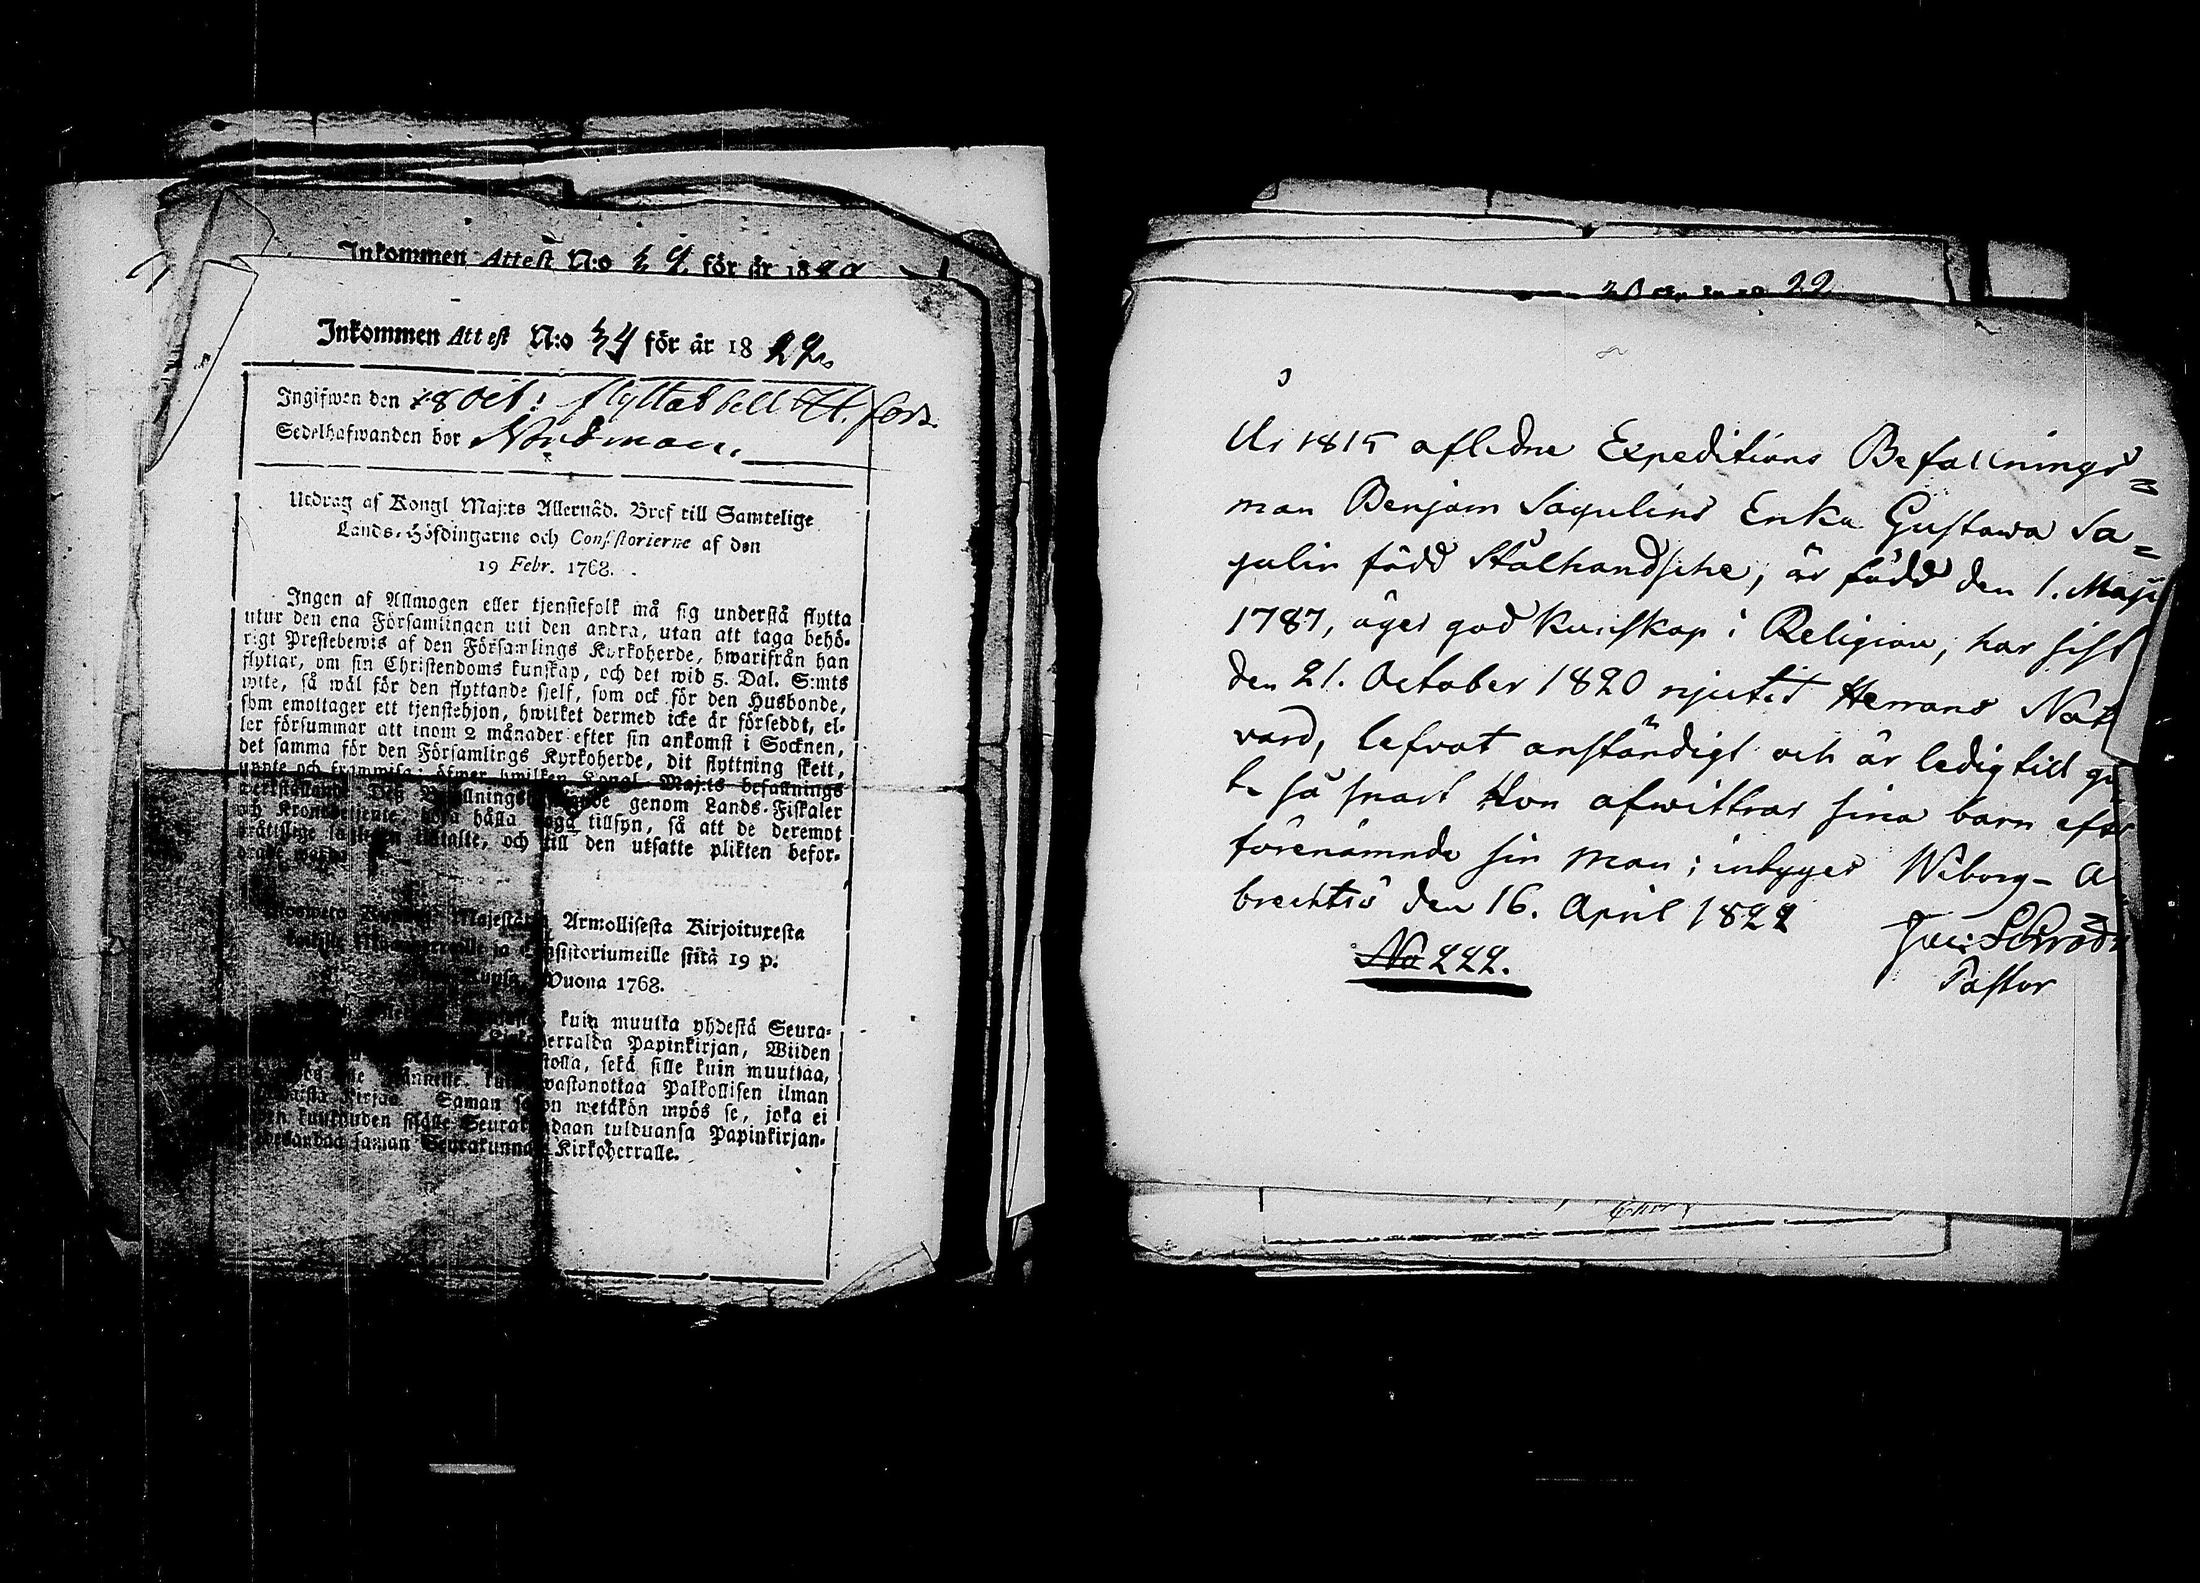 Inkommen Attest N:o för år 18
Inkommen Attest N:o 34 för år 18 22.
Ingifwen den 28 Oct: flyttas till H. fors.
Sedelhafwanden bor Nordman.
Utdrag af Kongl Maj:ts Allernåd. Bref till Samtelige
Lands-Höfdingarne och Consistorierne af den
19 Febr. 1768.
Ingen af Allmogen eller tjenstefolk må sig understå flytta
utur den ena Församlingen uti den andra, utan att taga behö-
rigt Prestebewis af den Församlings Kyrkoherde, hwarifrån han
flyttar, om sin Christendoms kunskap, och det wid 5. Dal. S:mts
wite, så wäl för den flyttande sjelf, som ock för den Husbonde,
som emottager ett tjenstehjon, hwilket dermed icke är försedt, el-
ler försummar att inom 2 månader efter sin ankomst i Socknen,
det samma för den Församlings Kyrkoherde, dit flyttning skett,
uppte och framwisa; öfwer hwilken Kongl Maj:ts befallnings
werkställande Deß genom Lands-Fiskaler
och hålla noga tillsyn, så att de deremot
och till den utsatte plikten befor-
Majestätin Armollisesta Kirjoituxesta
ja Consistoriumeille siitä 19 p.
Wuona 1768.
kuin muutta yhdestä Seura-
Papinkirjan, Wiiden
sekä sille kuin muuttaa,
wastanottaa Palkollisen ilman
Kirjaa. Saman wetäkön myös se, joka ei
kuukauden sisälle tulduansa Papinkirjan-
saman Seurakunnan Kirkoherralle.
22
År 1815 aflidne Expeditions Befallnings=
man Benjam Sagulins Enka Gustawa Sa=
gulin född Stålhandsche, är född den 1. Maji
1787, äger god kunskap i Religion, har sist
den 21. October 1820 njutit Herrans Natt
vard, lefvat anständigt och är ledig till gif
te så snart Hon afwittrar sina barn efter
förenämnde sin man; intygas Wiborg-
den 16. April 1822
Schröder
No 222.
Pastor